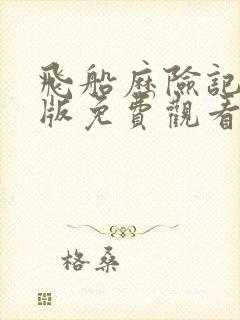 飛船歷險記
版免費觀看
格桑